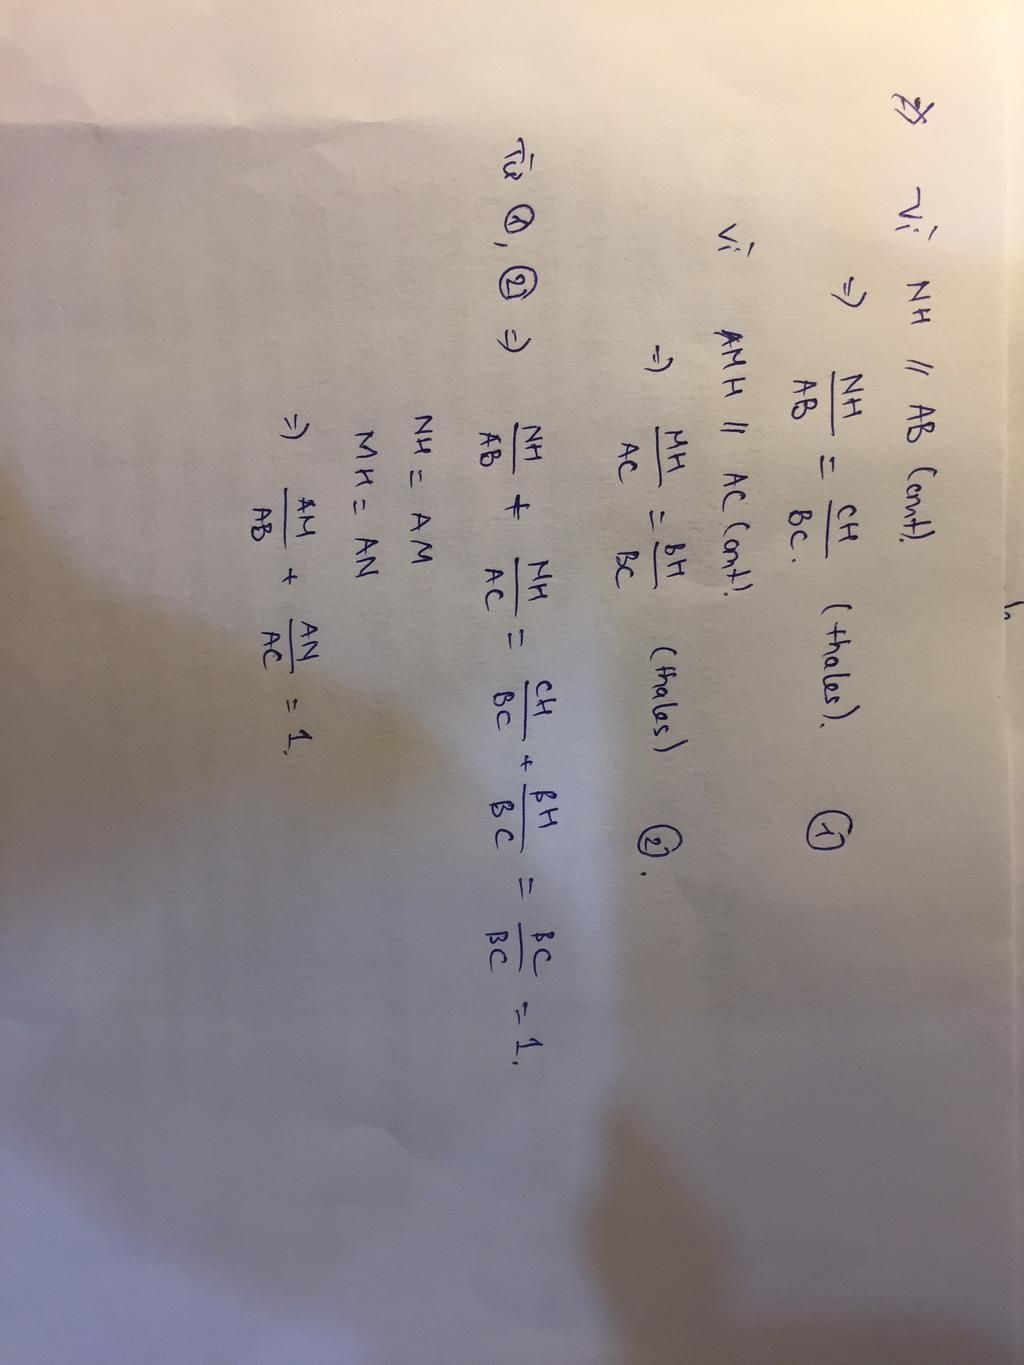 2) Vì NH // AB (cmt).
=> NH/AB = CH/BC. (thales). ①
Vì MH // AC (cmt).
=> MH/AC = BH/BC (thales) ②.
Từ ①, ② => NH/AB + MH/AC = CH/BC + BH/BC = BC/BC = 1.
NH = AM
MH = AN
=> AM/AB + AN/AC = 1.